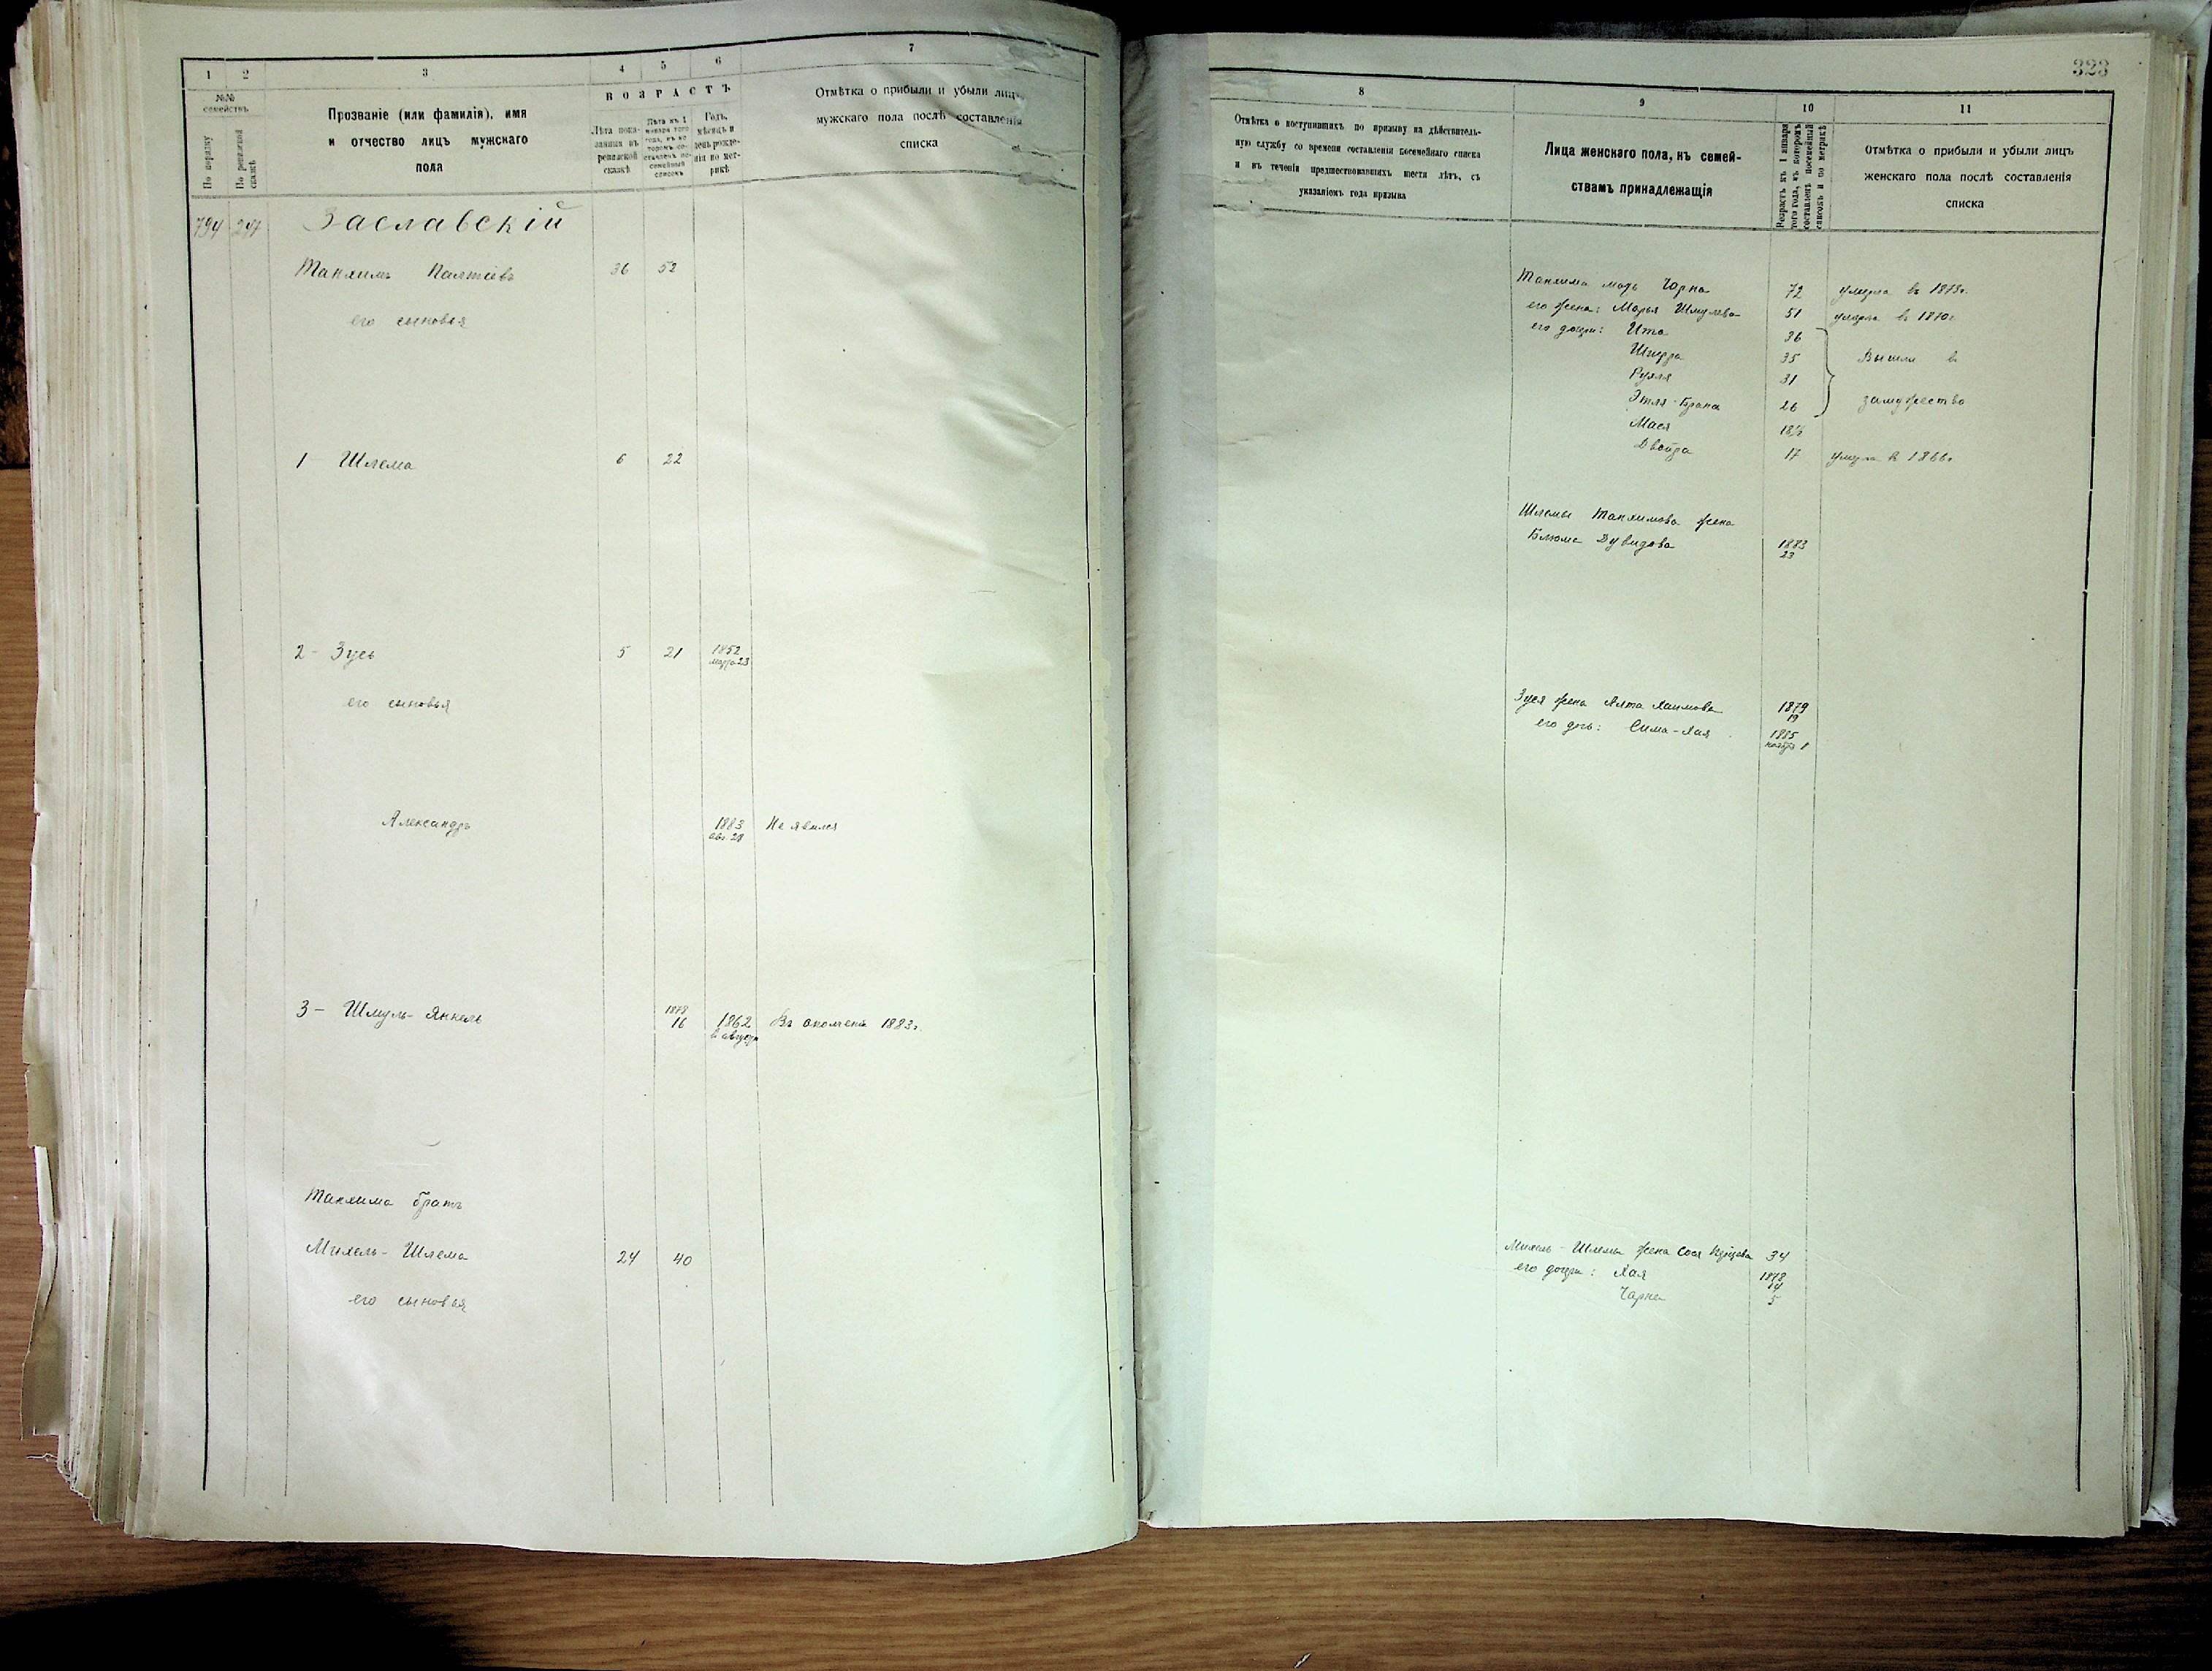 1 2 3 4 5 6 7
№№ семействъ
По порядку
По ревизской сказкѣ
Прозваніе (или фамилія), имя
и отчество лицъ мужскаго
пола
ВОЗРАСТЪ
Лѣта пока-
занныя въ
ревизской
сказкѣ
Лѣта къ 1
января того
года, въ ко-
торомъ со-
ставленъ по-
семейный
списокъ
Годъ,
мѣсяцъ и
день рожде-
нія по мет-
рикѣ
Отмѣтка о прибыли и убыли лицъ
мужскаго пола послѣ составленія
списка
794 247 Заславскій
Танхимъ 36 52
его сыновья
1 Шлема 6 22
2 - Зусь 5 21 1852
марта 23
его сыновья
Александръ 1883 Не явился
авг. 28
3 - Шмуль-Янкель 1878
16 1862 Въ ополчении 1883г.
в августа
Танхима братъ
Михель-Шлема 24 40
его сыновья
323
8 9 10 11
Отмѣтка о поступившихъ по призыву на дѣйствитель-
ную службу со времени составленія посемейнаго списка
и въ теченіи предшествовавшихъ шести лѣтъ, съ
указаніемъ года призыва
Лица женскаго пола, къ семей-
ствамъ принадлежащія
Возрастъ къ 1 января
того года, въ которомъ
составленъ посемейный
списокъ и по метрикѣ
Отмѣтка о прибыли и убыли лицъ
женскаго пола послѣ составленія
списка
Танхима мать Чарна 72 умерла въ 1873г.
его жена: Марья Шмулева 51 умерла в 1870г
его дочери: Ита 36
35 Вышли в
Рухля 31
Этля-Брана 26 замужество
Мася 18½
Двойра 17 умерла в 1866г.
Шлемы Танхимова жена
Блюма Дувидова 1883
23
Зуся жена Алта Хаимова 1879
19
его дочь: Сима-Хая 1885
ноября 1
Михель-Шлемы жена Сося 34
его дочери: Хая 1878
14
Чарна 5